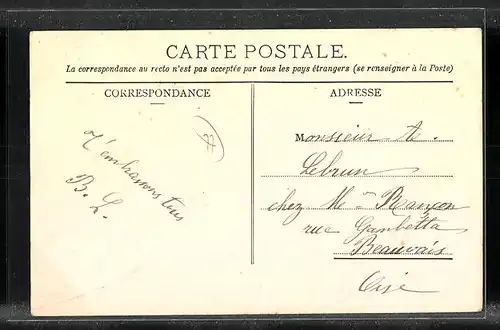 CARTE POSTALE.
La correspondance au recto n'est pas acceptée par tous les pays étrangers (se renseigner à la Poste)
CORRESPONDANCE
ADRESSE
T'embrassons tous
B. L.
Monsieur A.
Lebrun
chez Me Rançon
rue Gambetta
Beauvais
Oise